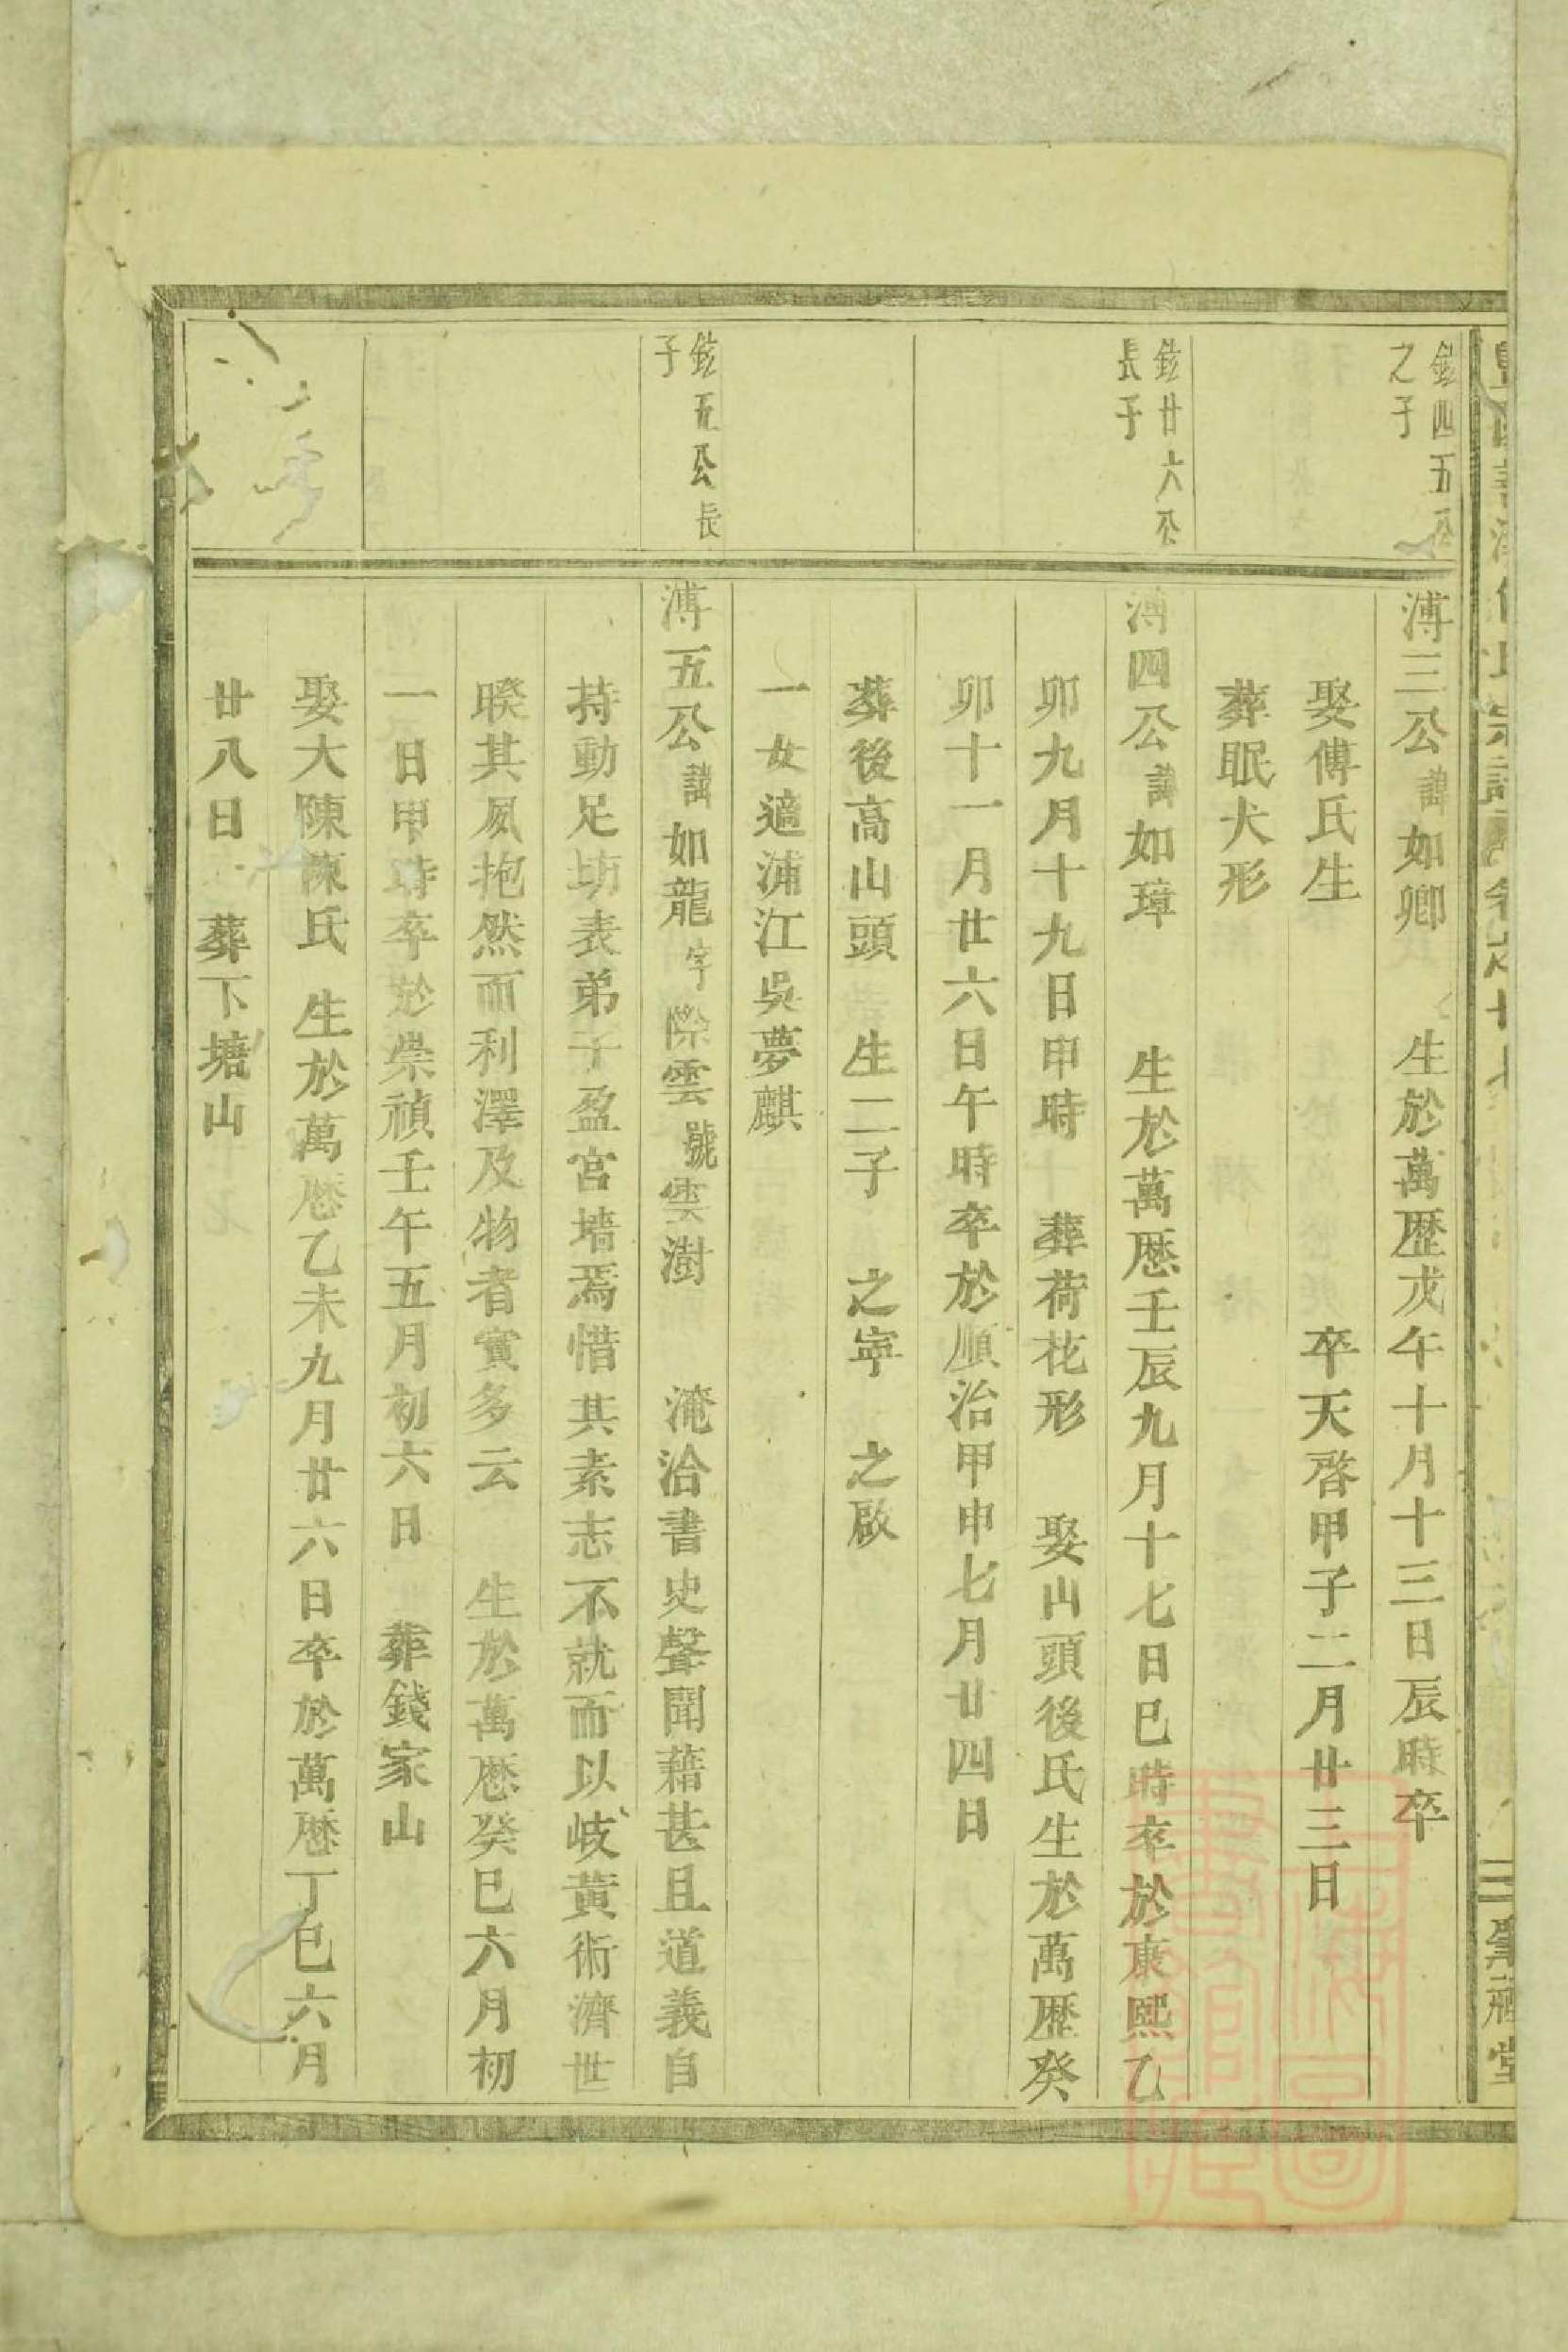 鉉四五公
之子
溥三公諱如卿 生於萬歷戊午十月十三日辰時卒
娶傅氏生 卒天啓甲子二月廿三日
葬眠犬形
鉉廿六公
長子
溥四公諱如璋 生於萬歷壬辰九月十七日巳時卒於康熙乙
卯九月十九日申時 葬荷花形 娶山頭後氏生於萬歷癸
卯十一月廿六日午時卒於順治甲申七月廿四日
葬後高山頭 生二子 之寧 之啟
一女適浦江吳夢麒
鉉五公長
子
溥五公諱如龍字際雲號雲澍 淹洽書史聲聞藉甚且道義自
持動足坊表弟子盈宮墻焉惜其素志不就而以岐黃術濟世
暌其夙抱然而利澤及物者實多云 生於萬歷癸巳六月初
一日甲時卒於崇禎壬午五月初六日 葬錢家山
娶大陳陳氏 生於萬歷乙未九月廿六日卒於萬歷丁巳六月
廿八日 葬下塘山